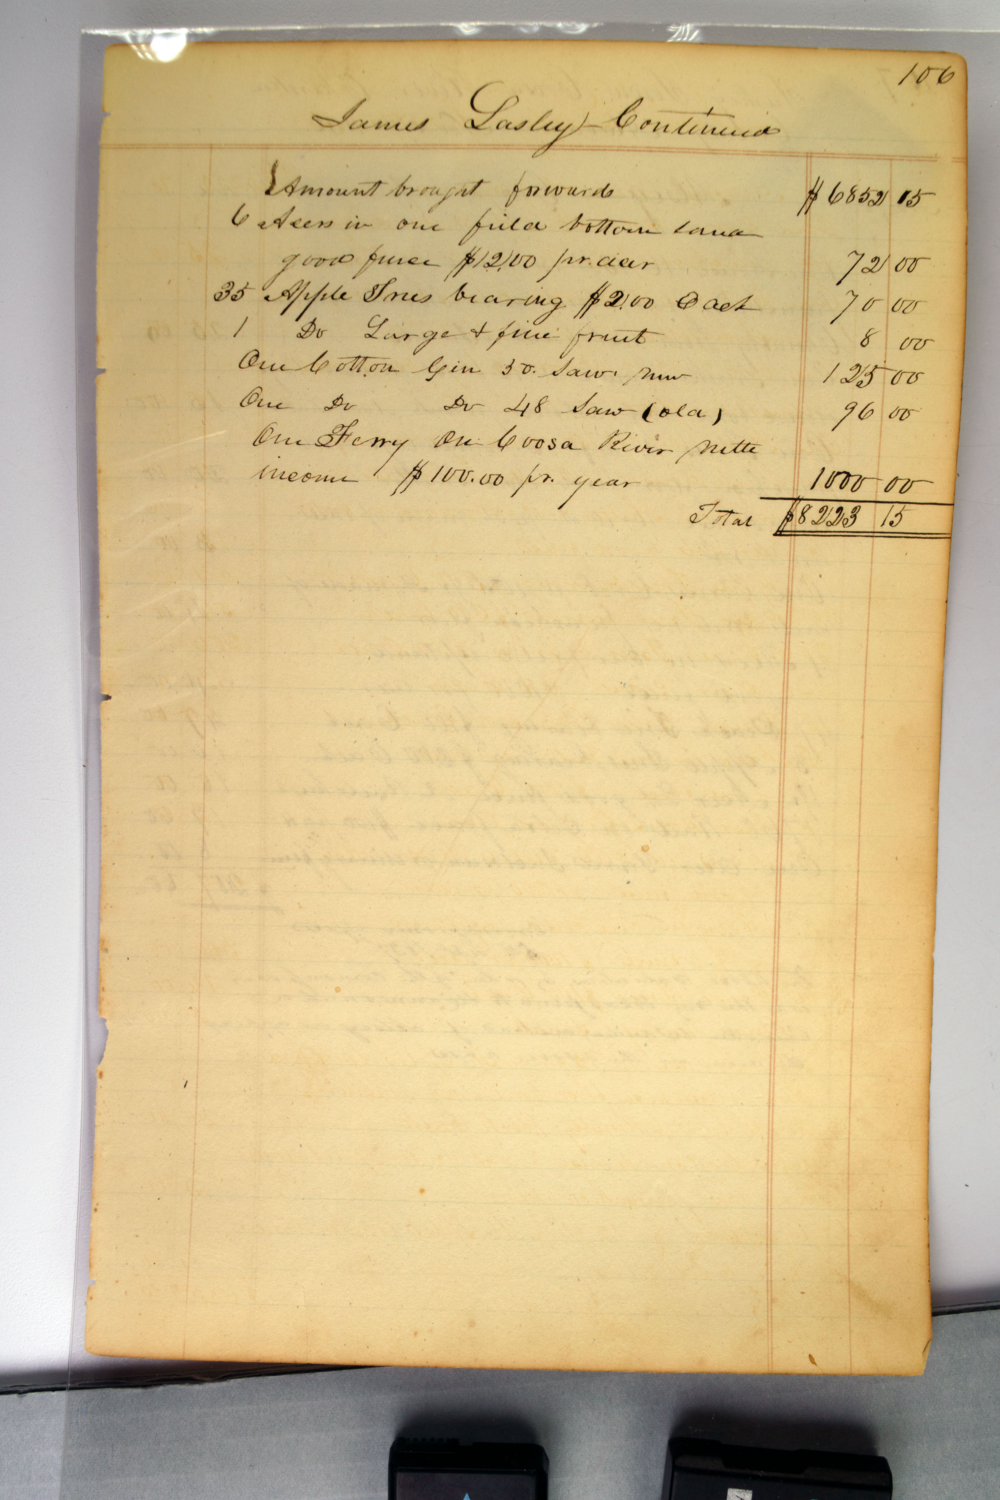 106
James Lasley Continued
Amount brought forwards $6852 15
6 Acers in one field bottom land
good fence $12.00 pr. acer 72 00
35 Apple Trees bearing $2.00 Each 70 00
1 Do Large & fine fruit 8 00
One Cotton Gin 50 Saw new 125 00
One Do Do 48 Saw (old) 96 00
One Ferry On Coosa River nette
income $100.00 pr. year 1000 00
Total $8223 15